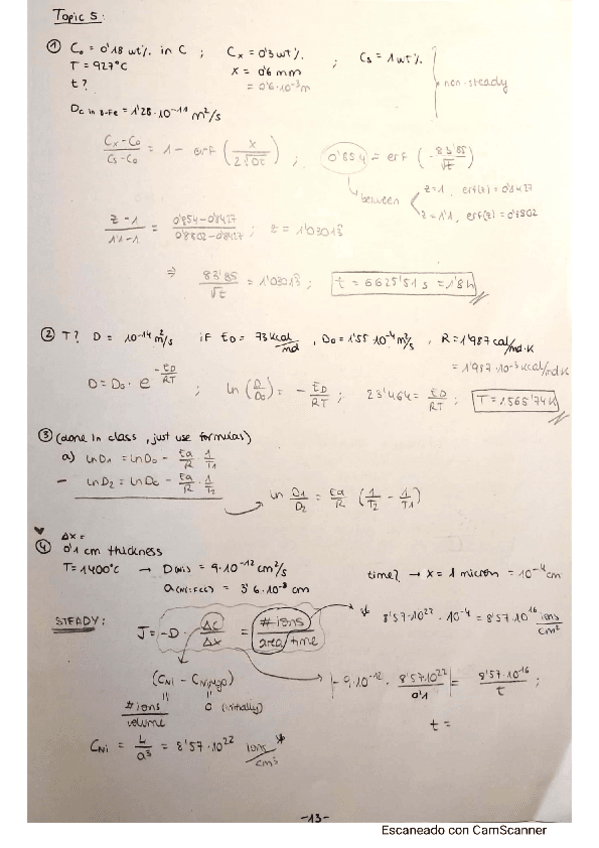 Topic 5:
① C₀ = 0'18 wt% in C ; Cx = 0'3 wt% ; Cs = 1 wt%
T = 927°C x = 0'6 mm
t? = 0'6·10⁻³m non-steady
Dc in γ-Fe = 1'28·10⁻¹¹ m²/s
Cx-C₀/Cs-C₀ = 1 - erf (x/2√Dt) ; 0'854 = erf (83'85/√t)
between z=1, erf(z)=0'8427
z=1'1, erf(z)=0'8802
z-1/1'1-1 = 0'854-0'8427/0'8802-0'8427 ; z = 1'03013
⇒ 83'85/√t = 1'03013 ; t = 6625'51 s = 1'8h
② T? D = 10⁻¹⁴ m²/s if ED = 73 Kcal/mol , D₀ = 1'55·10⁻⁴ m²/s , R = 1'987 cal/mol·K
= 1'987·10⁻³ Kcal/mol·K
D = D₀ · e^(-ED/RT) ; ln (D/D₀) = - ED/RT ; 23'464 = ED/RT ; T = 1565'74K
③ (done in class, just use formulas)
a) ln D₁ = ln D₀ - Ea/R · 1/T₁
- ln D₂ = ln D₀ - Ea/R · 1/T₂
ln D₁/D₂ = Ea/R (1/T₂ - 1/T₁)
Δx =
④ 0'1 cm thickness
T = 1400°C → D(Ni) = 9·10⁻¹² cm²/s time? → x = 1 micron = 10⁻⁴ cm
a(Ni:FCC) = 3'6·10⁻⁸ cm
STEADY: J = -D · ΔC/Δx = # ions/area/time * 8'57·10²² · 10⁻⁴ = 8'57·10¹⁶ ions/cm²
(CNi - CNi,MgO) |-9·10⁻¹² · 8'57·10²²/0'1| = 8'57·10¹⁶/t ;
# ions/volume 0 (initially)
t =
CNi = 4/a³ = 8'57·10²² ions/cm³ *
-13-
Escaneado con CamScanner